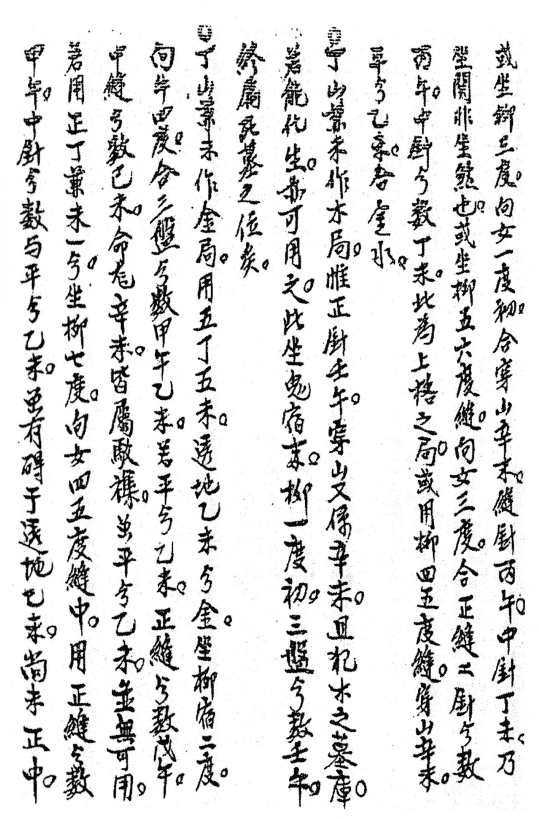 或坐柳三度。向女一度初。合穿山辛未。縫針丙午。中針丁未。乃
坐関非坐煞也。或坐柳五六度縫。向女三度。合正縫二針分数
丙午。中針分数丁未。此為上格之局。或用柳四五度縫。穿山辛未。
平分乙未。吞金水。
丁山兼未作木局。惟正針壬午。穿山又係辛未。且犯木之墓庫。
若能化生。亦可用之。此坐鬼宿末。柳一度初。三盤分数壬午。
終屬死墓之位矣。
丁山兼未作金局。用五丁五未。透地乙未分金。坐柳宿二度。
向牛四度。合三盤分数甲午乙未。若平分乙未。正縫分数戊午。
中縫分数己未。命尤辛未。皆屬駁襍。虽平分乙未。並無可用。
若用正丁兼未一分。坐柳七度。向女四五度縫中。用正縫分数
甲午。中針分数与平分乙未。虽有碍于透地乜未。尚未正中。